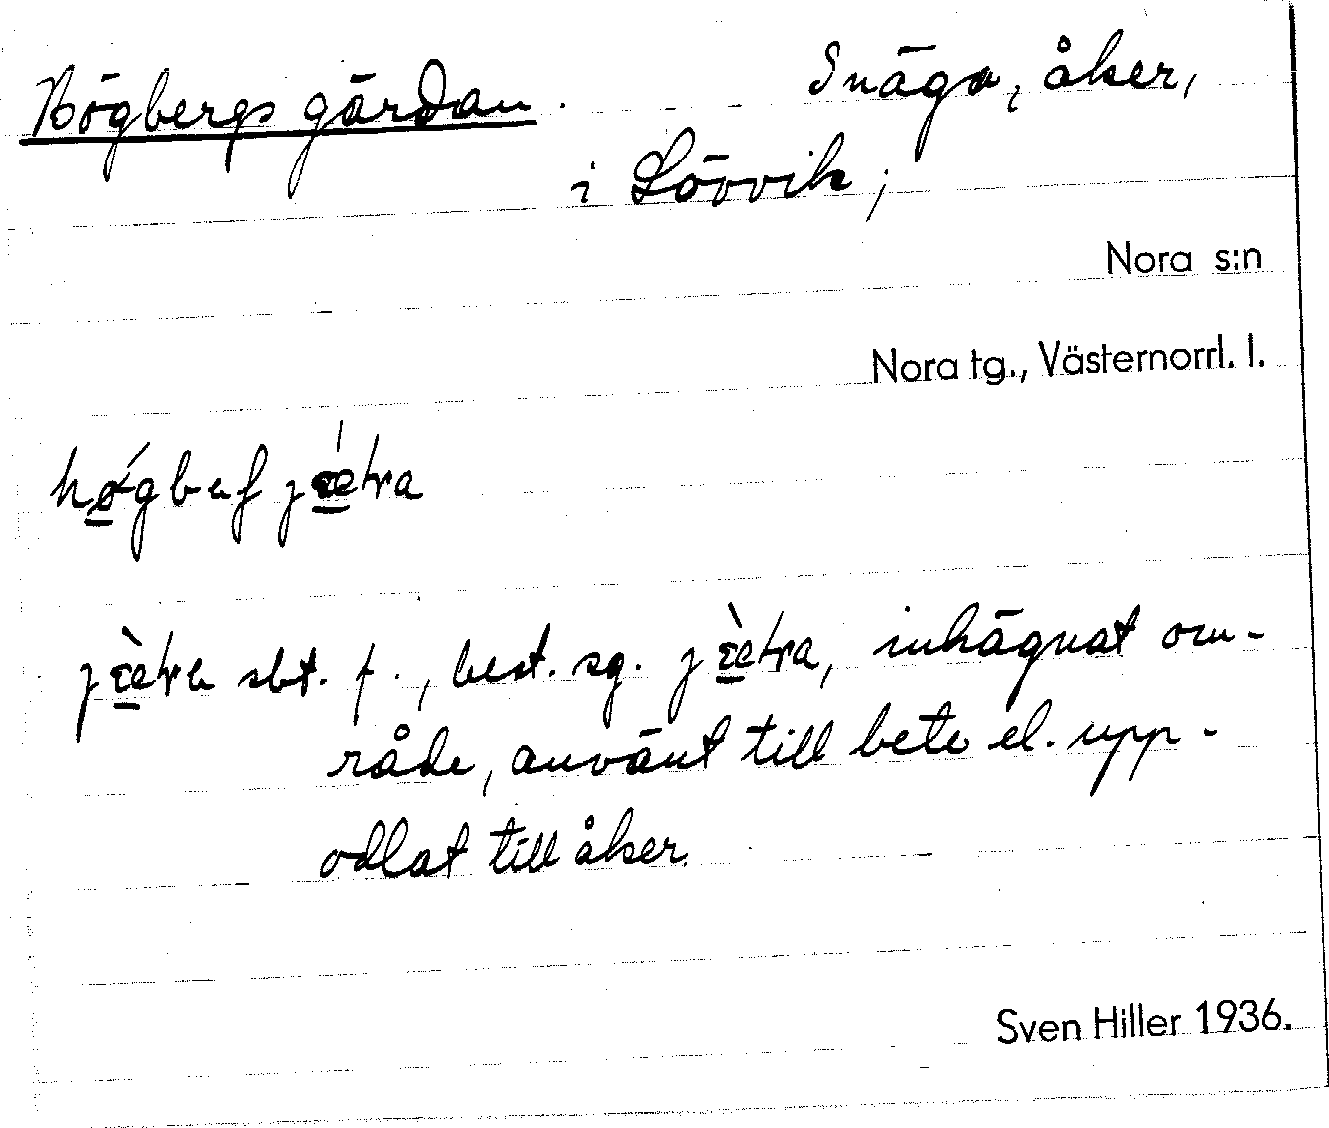 Högbergs gärdan. Snäga, åker,
i Lövvik;
Nora s:n
Nora tg., Västernorrl. l.
sbt. f., best. sg. inhägnat om-
råde, använt till bete el. upp-
odlat till åker.
Sven Hiller 1936.